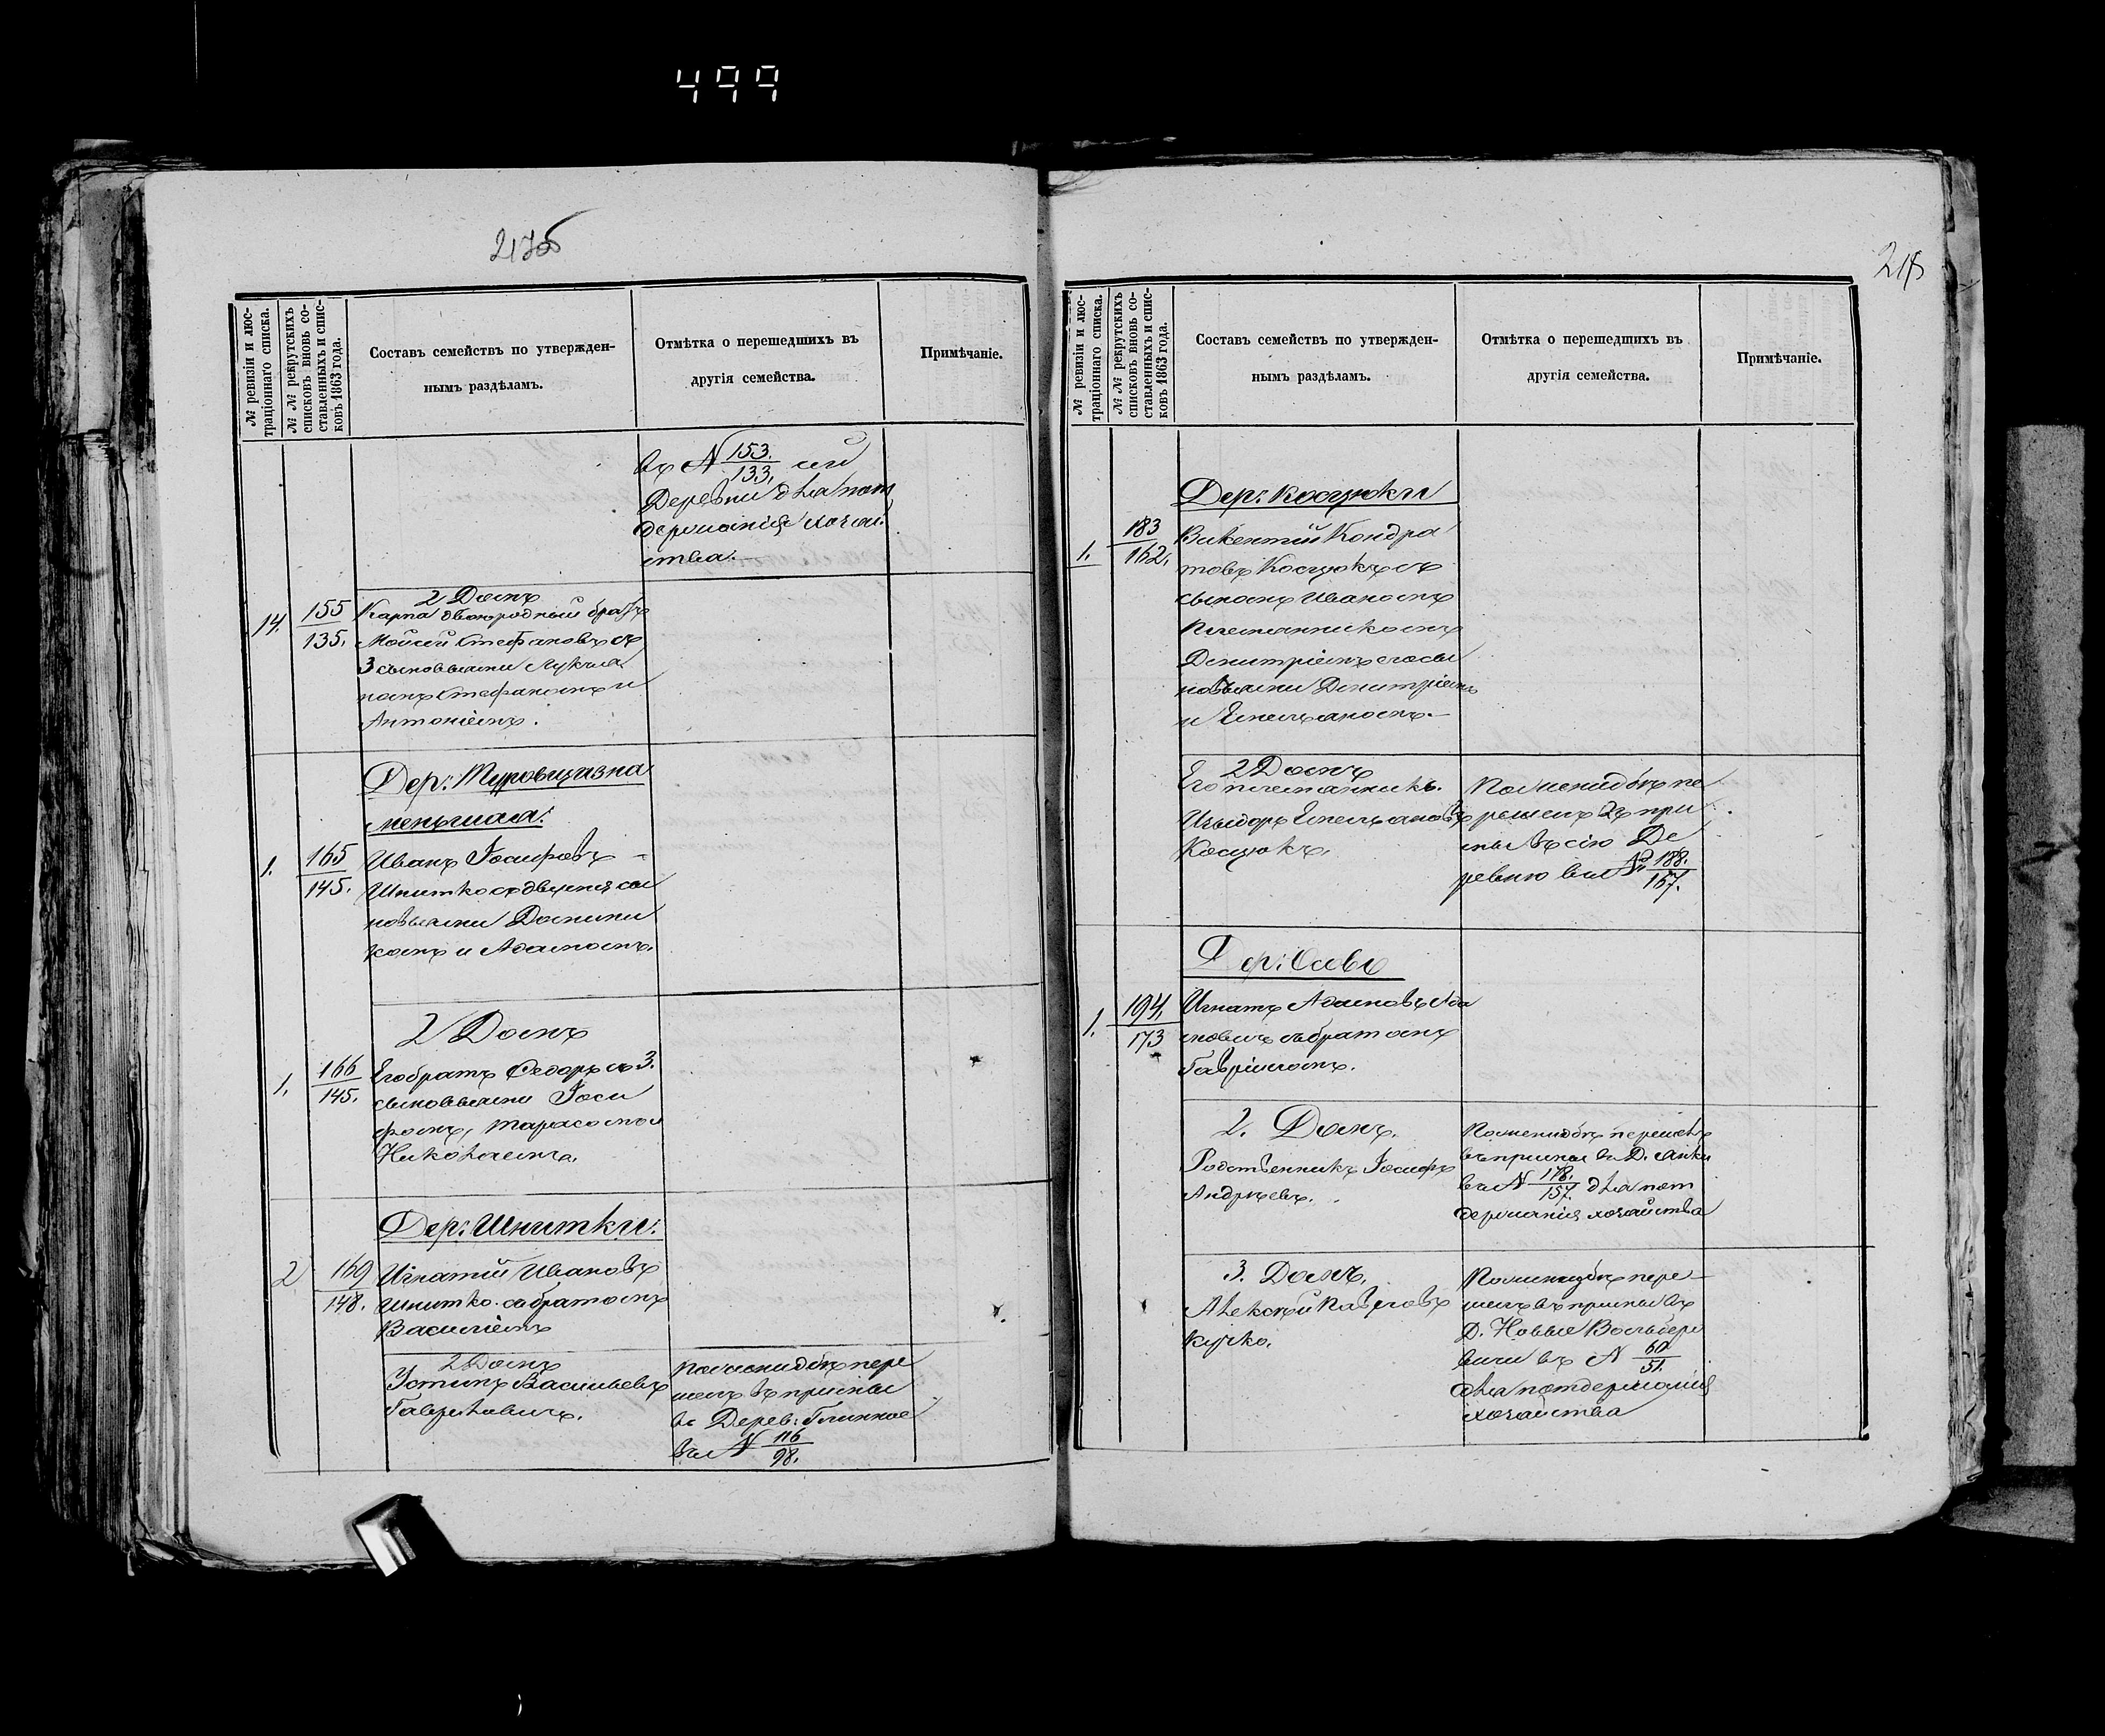 499
217об
№ ревизіи и люс-
траціоннаго списка.
№ № рекрутскихъ
списковъ вновь со-
ставленныхъ и спис-
ковъ 1863 года.
Составъ семействъ по утвержден-
нымъ раздѣламъ.
Отмѣтка о перешедшихъ въ
другія семейства.
Примѣчаніе.
въ N 153./133, сей
Деревни для под
держанія хозяй
ства.
2 Домъ
14. 155/135. Карпа двоюродный братъ
Мойсей Стефановъ съ
3 сыновьями Лукья
номъ Стефаномъ и
Антоніемъ.
Дер: Туровщизна
меньшая:
1. 165/145. Иванъ Іосифовъ
Шнитко съ двумя сы
новьями Домини
комъ и Адамомъ.
2 Домъ
1. 166/145. Его братъ Федоръ съ 3.
сыновьями Іоси
фомъ, Тарасомъ и
Николаемъ.
Дер: Шнитки:
2 169/148. Игнатій Ивановъ
Шнитко съ братомъ
Василіемъ
2 Домъ
Устинъ Васильевъ
Гавриловичъ.
Поименидбъ пере
шелъ въ примы
въ Дерев: Глинное
въ N 116/98.
218
№ ревизіи и люс-
траціоннаго списка.
№ № рекрутскихъ
списковъ вновь со-
ставленныхъ и спис-
ковъ 1863 года.
Составъ семействъ по утвержден-
нымъ раздѣламъ.
Отмѣтка о перешедшихъ въ
другія семейства.
Примѣчаніе.
Дер: Косцюки
1. 183/162, Викентій Кондра
товъ Косцюкъ съ
сыномъ Иваномъ
Племянникомъ
Димитріемъ его сы
новьями Димитріемъ
и Емельяномъ.
2 Домъ
Его племянникъ.
Изыдоръ Емельяновъ
Косцюкъ.
пе
решелъ въ при
мы въ сію Де
ревню въ № 188./167.
Дер: Осово
1. 194,/173 Игнатъ Адамовъ Ада
мовичъ съ братомъ
Гавріиломъ.
2. Домъ.
Родственникъ Іосифъ
Андреевъ.
перешелъ
въ примы въ Д.
въ N 178./157. для под
держанія хозяйства
3. Домъ.
Алексѣй Павловъ
Кучко.
пере-
шелъ въ примы въ
Д. Новые
вичи въ N 60/51.
для поддержанія
хозяйства